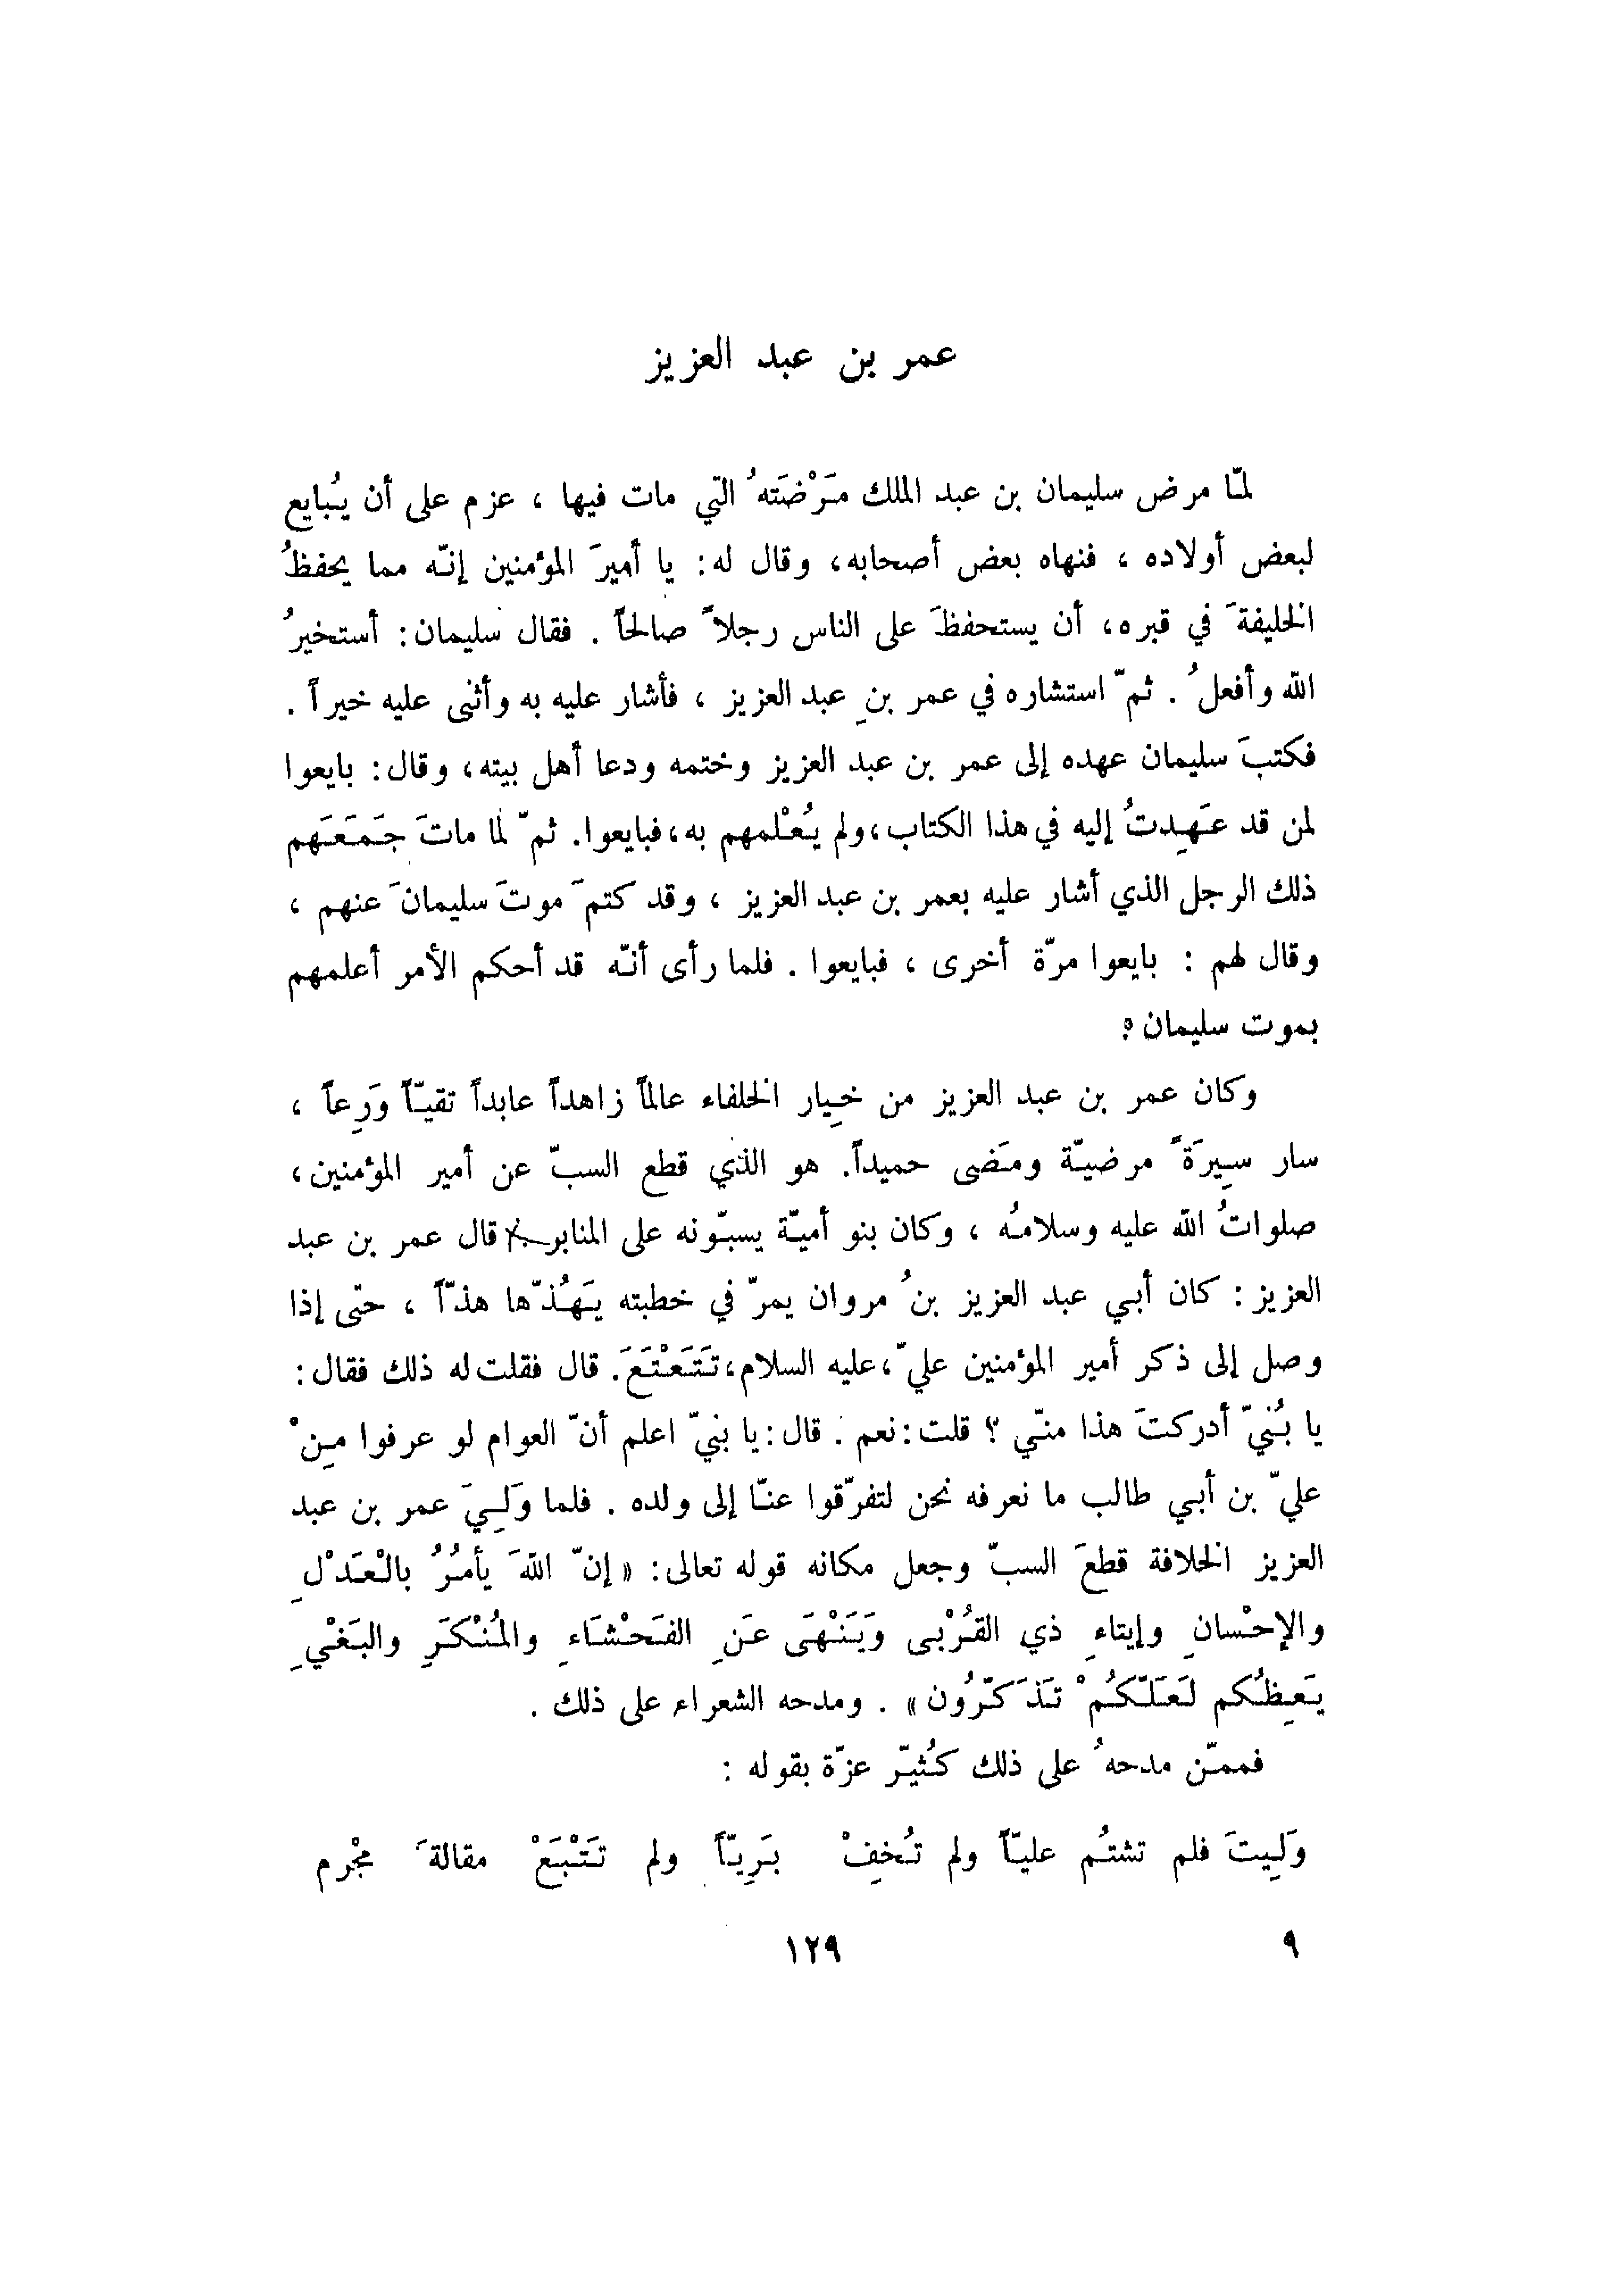 عمر بن عبد العزيز
لمّا مرض سليمان بن عبد الملك مَرْضَتهُ التي مات فيها ، عزم على أن يُبايع
لبعض أولاده ، فنهاه بعض أصحابه، وقال له: يا أميرَ المؤمنين إنّه مما يحفظُ
الخليفةَ في قبره، أن يستحفظَ على الناس رجلاً صالحاً . فقال سليمان: أستخيرُ
الله وأفعلُ . ثمّ استشاره في عمر بنِ عبد العزيز ، فأشار عليه به وأثنى عليه خيراً .
فكتبَ سليمان عهده إلى عمر بن عبد العزيز وختمه ودعا أهل بيته، وقال: بايعوا
لمن قد عَهِدتُ إليه في هذا الكتاب،ولم يُعْلمهم به،فبايعوا. ثمّ لما ماتَ جَمَعَهم
ذلك الرجل الذي أشار عليه بعمر بن عبد العزيز ، وقد كتمَ موتَ سليمانَ عنهم ،
وقال لهم : بايعوا مرّة أخرى ، فبايعوا . فلما رأى أنّه قد أحكم الأمر أعلمهم
بموت سليمان .
وكان عمر بن عبد العزيز من خِيار الخلفاء عالماً زاهداً عابداً تقيّاً وَرِعاً ،
سار سِيرَةً مرضيّة ومَضى حميداً. هو الذي قطع السبّ عن أمير المؤمنين،
صلواتُ الله عليه وسلامُه ، وكان بنو أميّة يسبّونه على المنابر. قال عمر بن عبد
العزيز : كان أبي عبد العزيز بنُ مروان يمرّ في خطبته يَهُذّها هذّاً ، حتّى إذا
وصل إلى ذكر أمير المؤمنين عليّ،عليه السلام،تَتَعْتَعَ. قال فقلت له ذلك فقال:
يا بُنيّ أدركتَ هذا منّي ؟ قلت:نعم . قال:يا بنيّ اعلم أنّ العوام لو عرفوا مِنْ
عليّ بن أبي طالب ما نعرفه نحن لتفرّقوا عنّا إلى ولده . فلما وَلِيَ عمر بن عبد
العزيز الخلافة قطعَ السبّ وجعل مكانه قوله تعالى: « إنّ اللهَ يأمُرُ بالْعَدْلِ
والإحْسانِ وإيتاءِ ذي القُرْبى وَيَنْهَى عَنِ الفَحْشَاءِ والمُنْكَرِ والبَغْيِ
يَعِظُكم لَعَلّكُمْ تَذَكّرُون » . ومدحه الشعراء على ذلك .
فممّن مدحهُ على ذلك كُثيّر عزّة بقوله :
وَلِيتَ فلم تشتُم عليّاً ولم تُخفِْ بَرِيّاً ولم تَتْبَعْ مقالةَ مجْرم
٩ ١٢٩